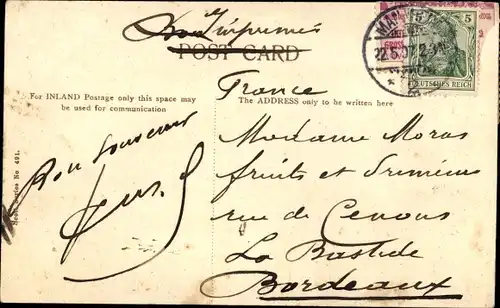 Imprimés
POST CARD
5
22.5.07.2-3N.
DEUTSCHES REICH
France
For INLAND Postage only this space may
be used for communication
The ADDRESS only to be written here
Bon souvenir
Madame Moras
fruits et primeurs
rue de Cenons
La Bastide
Bordeaux
Series No 491.